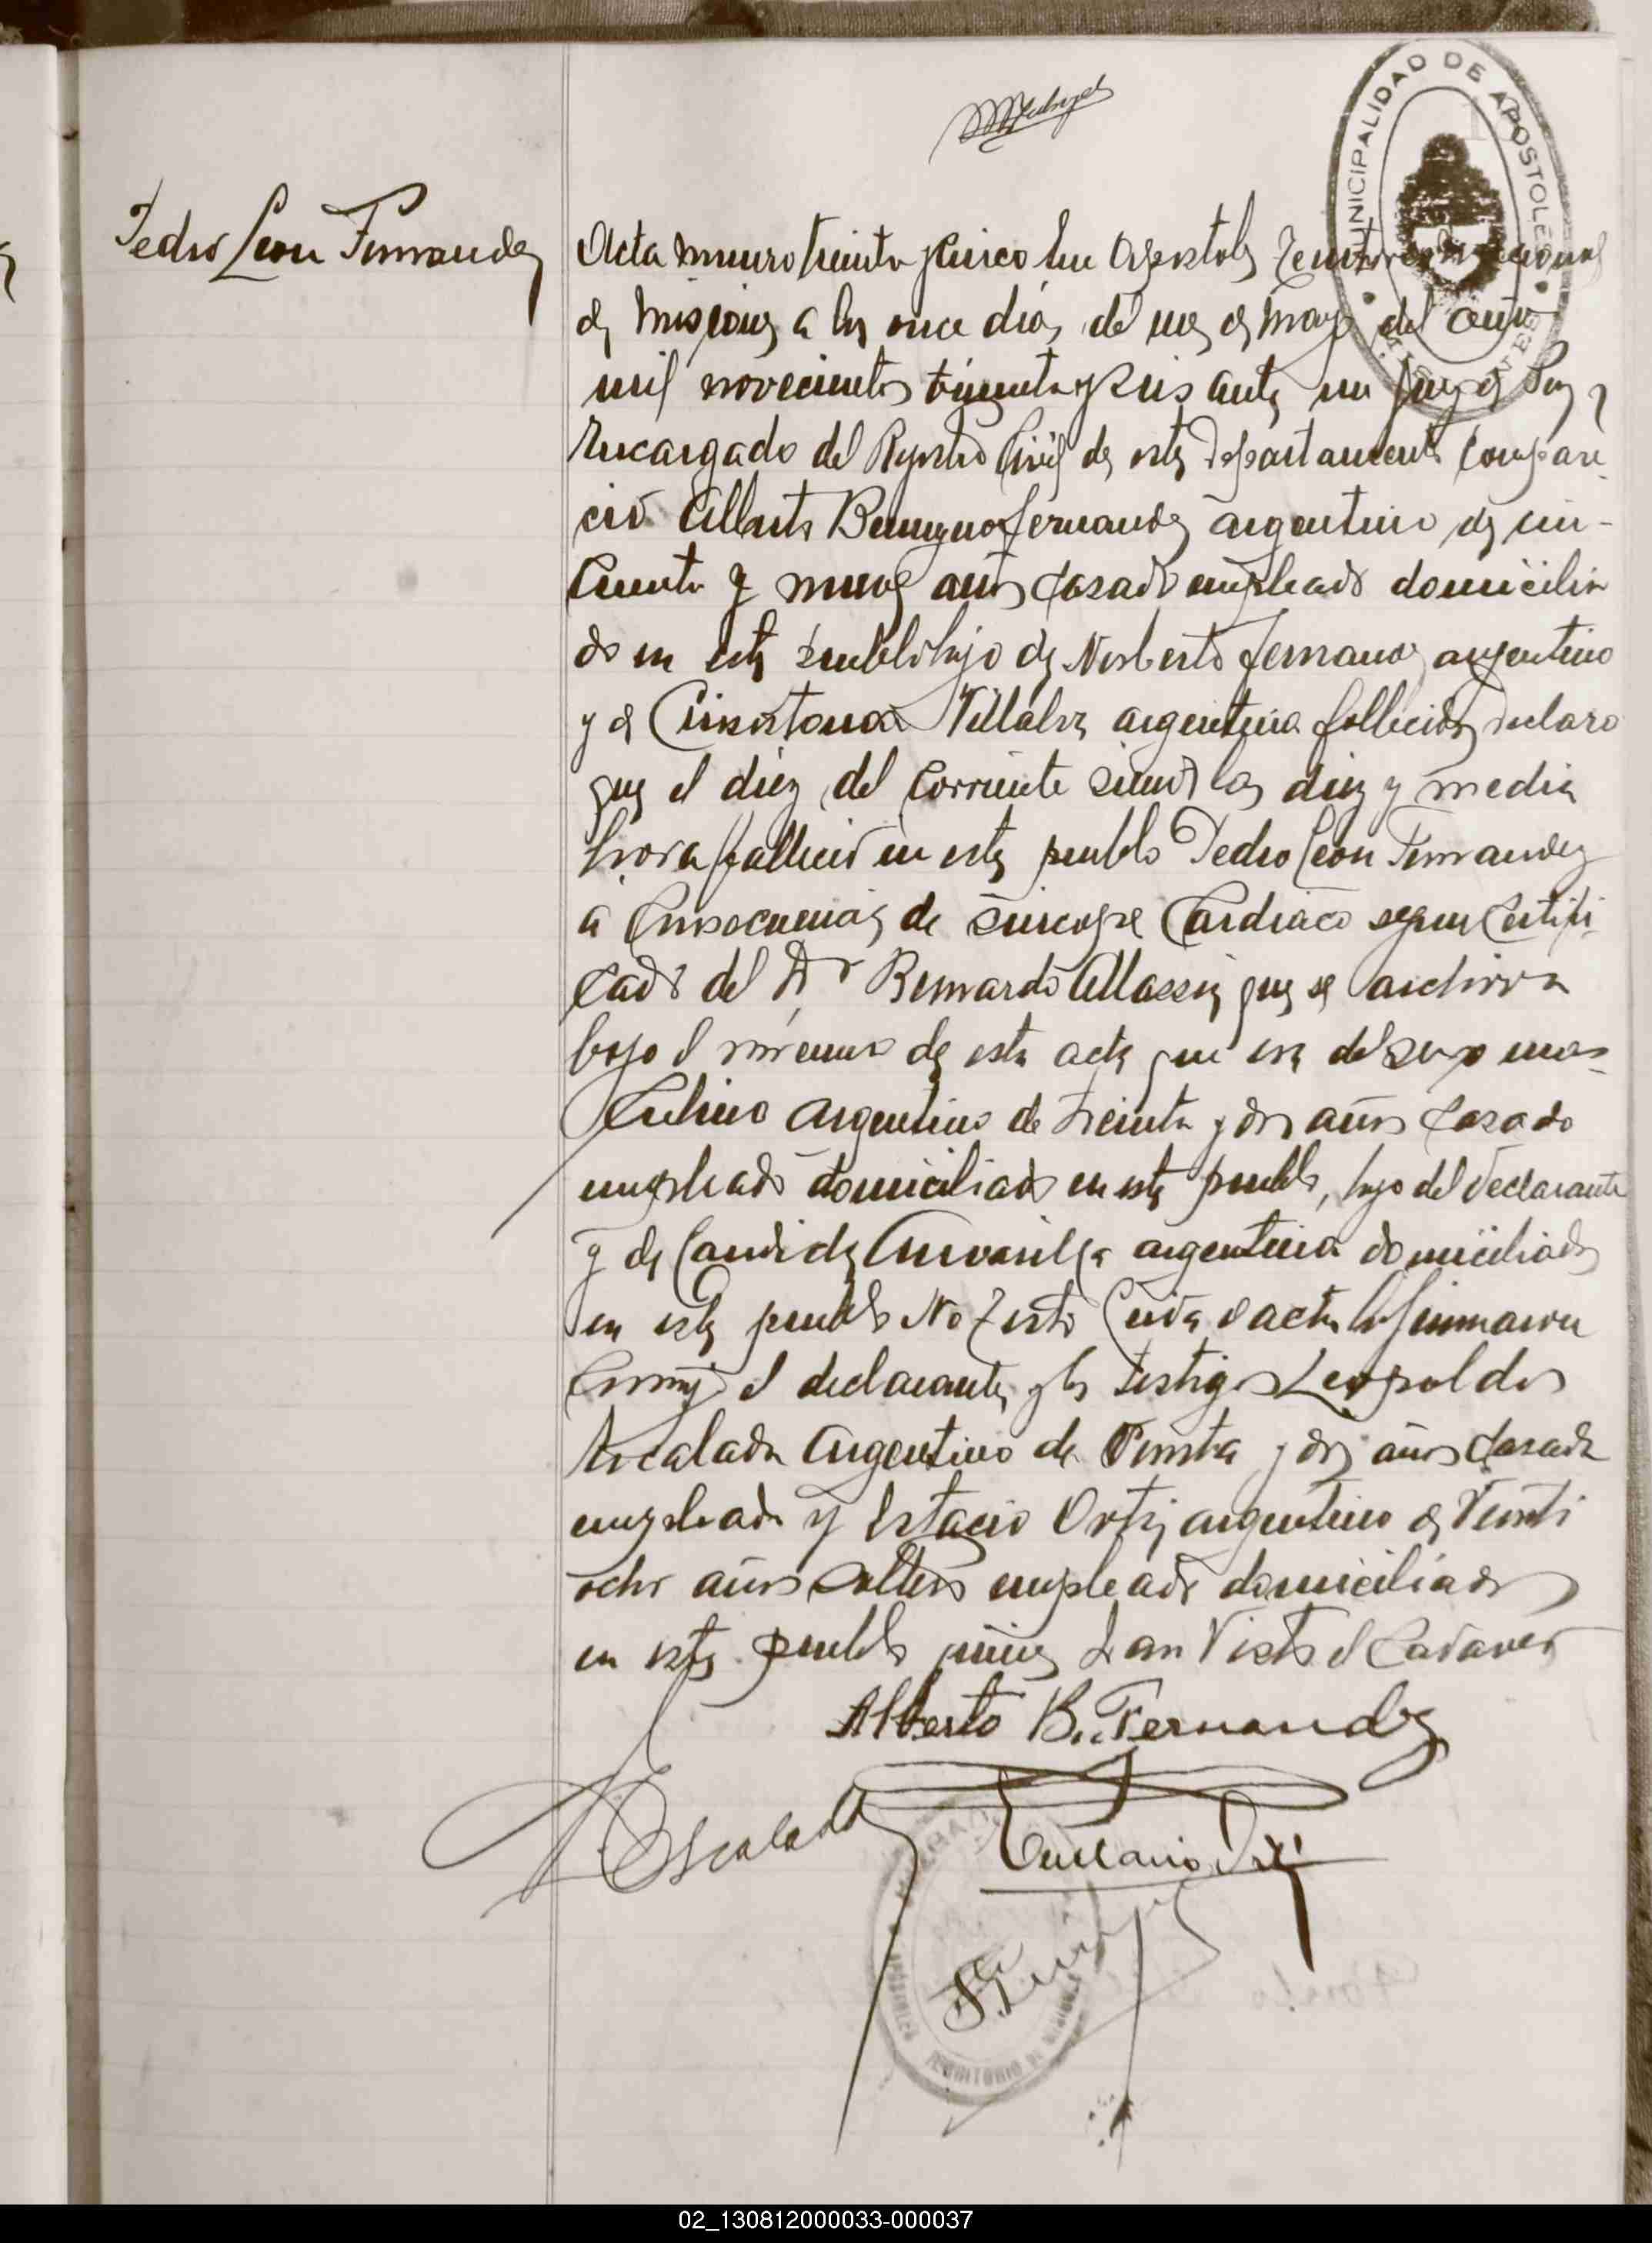 MUNICIPALIDAD DE APOSTOLES
MISIONES
Pedro Leon Fernandez
Acta numero treinta y cinco En Apostoles Territorio Nacional
de Misiones a los once dias del mes de Mayo del año
mil novecientos treinta y seis ante mi Juez de Paz y
Encargado del Registro Civil de este Departamento compare
ció Alberto Benigno Fernandez argentino de cin-
cuenta y nueve años casado empleado domicilia
do en este pueblo hijo de Norberto Fernandez argentino
y de Villalva argentina fallecidos declaro
que el diez del corriente siendo las diez y media
hora fallecio en este pueblo Pedro Leon Fernandez
a consecuencias de sincope Cardiaco segun Certifi-
cado del Dr Bernardo que se archiva
bajo el número de esta acta que era del sexo mas-
culino argentino de treinta y dos años casado
empleado domiciliado en este pueblo, hijo del declarante
y de Candida argentina domiciliada
en este pueblo No Testó Leida el acta la firmaron
conmigo el declarante y los testigos Leopoldo
Escalada argentino de treinta y dos años casado
empleado y Estacio Ortiz argentino de Veinti
ocho años soltero empleado domiciliados
en este pueblo quienes han Visto el Cadaver
Alberto B. Fernandez
L. Escalada
TERRITORIO DE MISIONES
02_130812000033-000037